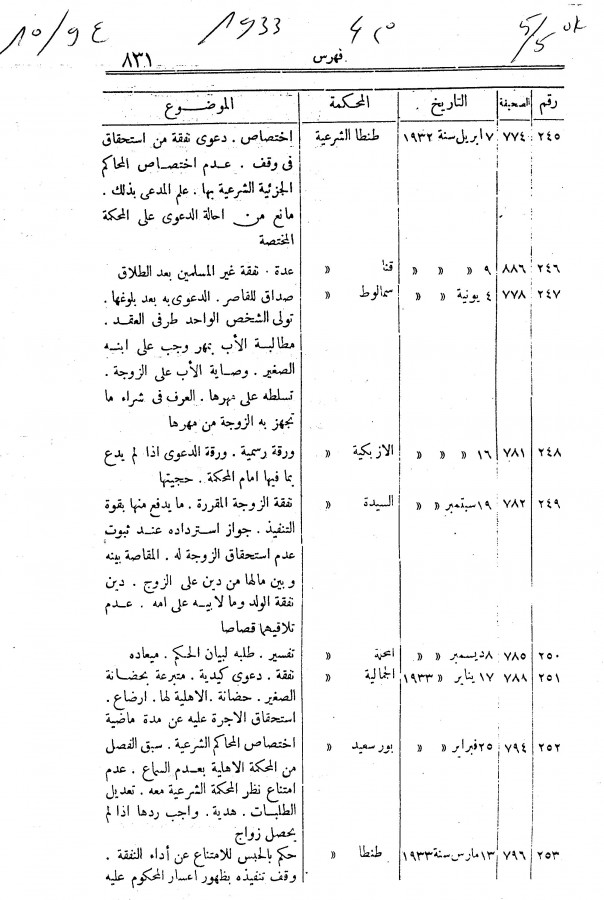 ١٠/٩٤ 1933 ٥/٥
٨٣١ فهرس
رقم الصحيفة التاريخ المحكمة الموضوع
٢٤٥ ٧٧٤ ٧ ابريل سنة ١٩٣٢ طنطا الشرعية اختصاص . دعوى نفقة من استحقاق
فى وقف . عدم اختصاص المحاكم
الجزئية الشرعية بها . علم المدعى بذلك .
مانع من احالة الدعوى على المحكمة
المختصة
٢٤٦ ٨٨٦ ٩ » » » قنا » عدة . نفقة غير المسلمين بعد الطلاق
٢٤٧ ٧٧٨ ٤ يونية » » سمالوط » صداق للقاصر . الدعوى به بعد بلوغها .
تولى الشخص الواحد طرفى العقد .
مطالبة الأب بمهر وجب على ابنه
الصغير . وصاية الأب على الزوجة .
تسلطه على مهرها . العرف فى شراء ما
تجهز به الزوجة من مهرها
٢٤٨ ٧٨١ ١٦ » » » الازبكية » ورقة رسمية . ورقة الدعوى اذا لم يدع
بما فيها امام المحكمة . حجيتها
٢٤٩ ٧٨٢ ١٩ سبتمبر » » السيدة » نفقة الزوجة المقررة . ما يدفع منها بقوة
التنفيذ . جواز استرداده عند ثبوت
عدم استحقاق الزوجة له . المقاصة بينه
وبين مالها من دين على الزوج . دين
نفقة الولد وما لابيه على امه . عدم
تلاقيهما قصاصا
٢٥٠ ٧٨٥ ٨ ديسمبر » » » تفسير . طلبه لبيان الحكم . ميعاده
٢٥١ ٧٨٨ ١٧ يناير » ١٩٣٣ الجمالية » نفقة . دعوى كيدية . متبرعة بحضانة
الصغير . حضانة . الاهلية لها . ارضاع .
استحقاق الاجرة عليه عن مدة ماضية
٢٥٢ ٧٩٤ ٢٥ فبراير » » بور سعيد » اختصاص المحاكم الشرعية . سبق الفصل
من المحكمة الاهلية بعدم السماع . عدم
امتناع نظر المحكمة الشرعية معه . تعديل
الطلبات . هدية . واجب ردها اذا لم
يحصل زواج
٢٥٣ ٧٩٦ ١٣ مارس سنة ١٩٣٣ طنطا » حكم بالحبس للامتناع عن أداء النفقة .
وقف تنفيذه بظهور اعسار المحكوم عليه